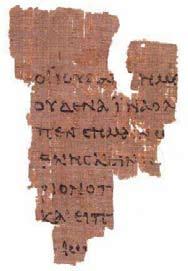 ΟΙ ΙΟΥΔΑ ΗΜΙ
ΟΥΔΕΝΑ ΙΝΑ Ο Λ
ΠΕΝ CΗΜΑΙΝΩ
ΘΝΗCΚΕΙΝ
ΡΙΟΝ Ο Π
ΚΑΙ ΕΙΠ